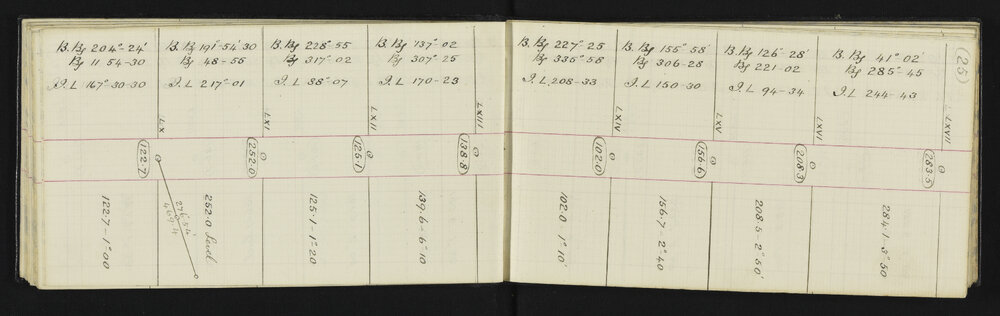 (25)
B. Bg 204°-24'
Bg 11 54-30
I. L 167°-30-30
B. Bg 191°-54'30
Bg 48-55
I. L 217°-01
B. Bg 228°-55
Bg 317°02
I. L 88°-07
B. Bg 137°-02
Bg 307°25
I. L 170-23
B. Bg 227°25
Bg 335°58
I. L 208-33
B. Bg 155°58'
Bg 306-28
I. L 150-30
B. Bg 126°-28'
Bg 221-02
I. L 94-34
B. Bg 41°02'
Bg 285°-45
I. L 244-43
LX
LXI
LXII
LXIII
LXIV
LXV
LXVI
LXVII
122.7
252.0
125.1
138.8
102.0
156.6
208.3
283.5
122.7-1°00
252.0 Level
125.1-1°20
139.6-6°10
102.0-1°10'
156.7-2°40
208.5-2°50'
284.1-3°50
469.4